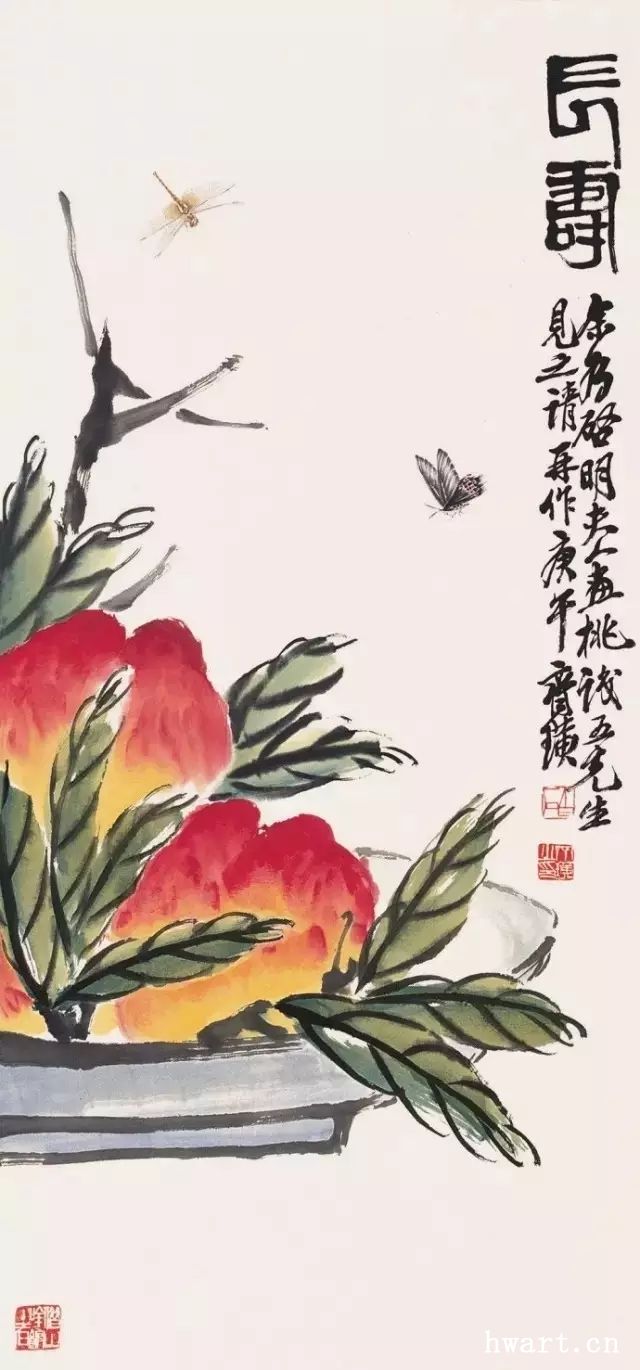 長壽
余為啓明夫人畫桃誠五先生
見之請再作庚午齊璜
hwart.cn